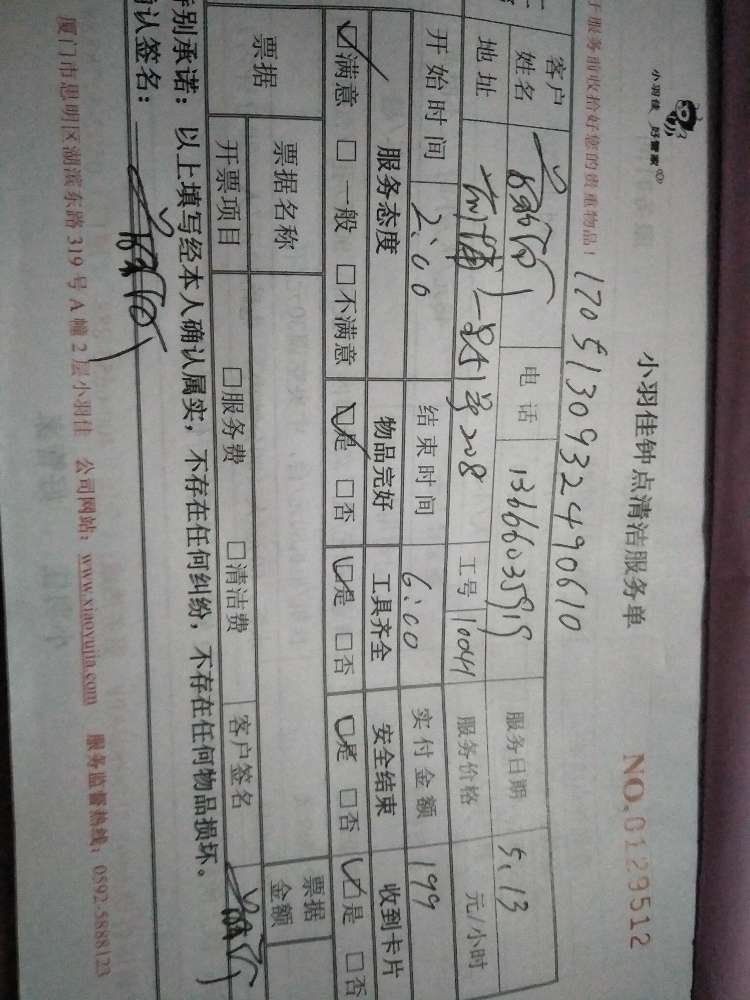 小羽佳 好管家
小羽佳钟点清洁服务单
NO.0129512
服务前收拾好您的贵重物品!
1705130932490610
客户姓名 电话 服务日期 5.13
地址 工号 10041 服务价格 元/小时
开始时间 2:00 结束时间 6:00 实付金额 199
服务态度 物品完好 工具齐全 安全结束 收到卡片
☑满意 □一般 □不满意 ☑是 □否 ☑是 □否 ☑是 □否 ☑是 □否
票据 票据名称 票据金额
开票项目 □服务费 □清洁费 客户签名
特别承诺:以上填写经本人确认属实,不存在任何纠纷,不存在任何物品损坏。
确认签名:
厦门市思明区湖滨东路319号A幢2层小羽佳 公司网站:www.xiaoyujia.com 服务监督热线:0592-5888123